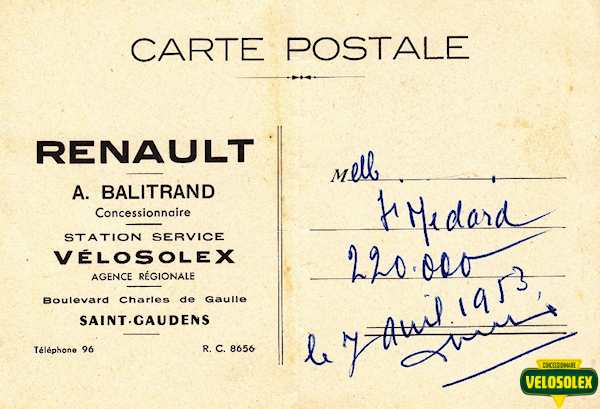 CARTE POSTALE
RENAULT
A. BALITRAND
Concessionnaire
STATION SERVICE
VÉLOSOLEX
AGENCE RÉGIONALE
Boulevard Charles de Gaulle
SAINT-GAUDENS
Téléphone 96 R. C. 8656
Melle
St Medard
220.000
le 7 avril 1953
CONCESSIONNAIRE
VELOSOLEX